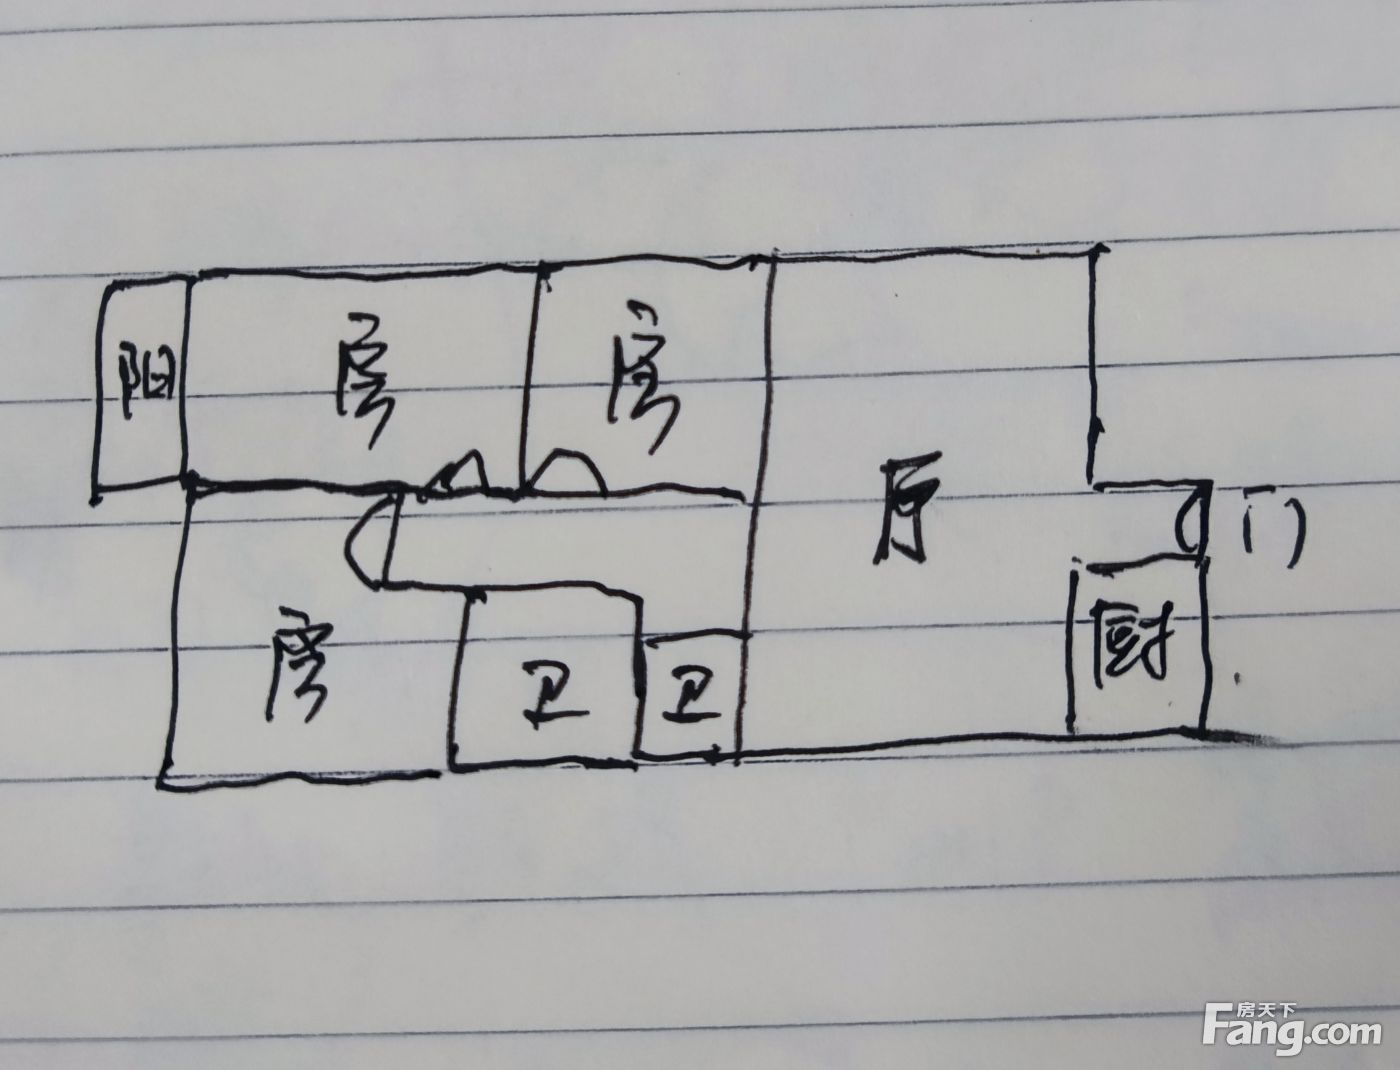 阳
房
房
厅
门
房
卫
卫
厨
房天下
Fang.com